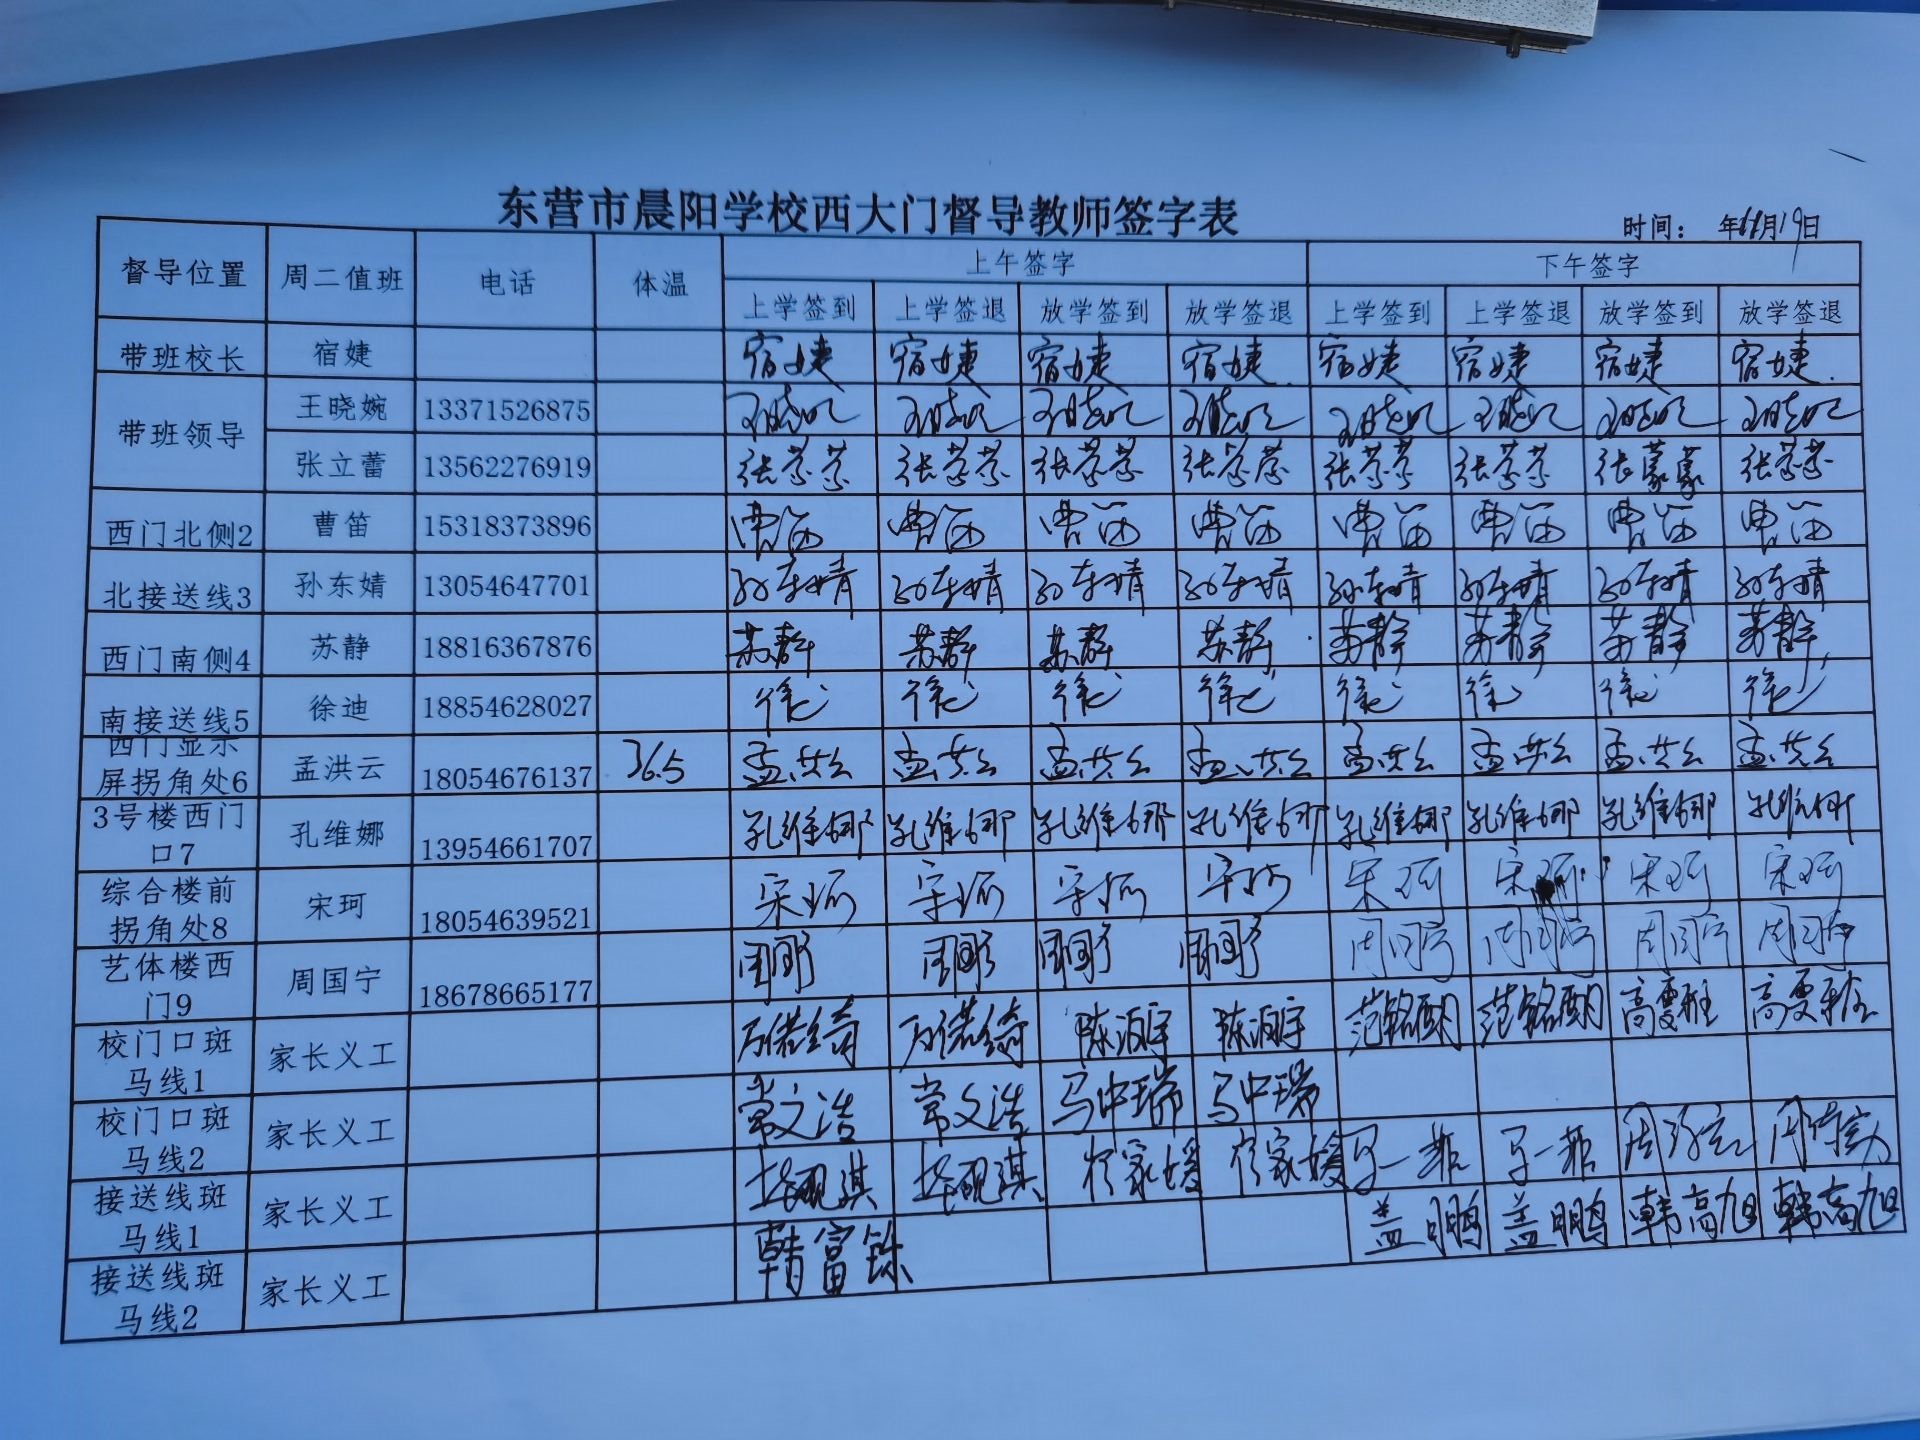 东营市晨阳学校西大门督导教师签字表
时间： 年11月19日
督导位置 周二值班 电话 体温 上午签字 下午签字
上学签到 上学签退 放学签到 放学签退 上学签到 上学签退 放学签到 放学签退
带班校长 宿婕 宿婕 宿婕 宿婕 宿婕 宿婕 宿婕 宿婕 宿婕
带班领导 王晓婉 13371526875
张立蕾 13562276919
西门北侧2 曹笛 15318373896 曹笛 曹笛 曹笛 曹笛 曹笛 曹笛 曹笛 曹笛
北接送线3 孙东婧 13054647701 孙东婧 孙东婧 孙东婧 孙东婧 孙东婧 孙东婧 孙东婧 孙东婧
西门南侧4 苏静 18816367876 苏静 苏静 苏静 苏静 苏静 苏静 苏静 苏静
南接送线5 徐迪 18854628027 徐迪 徐迪 徐迪 徐迪 徐迪 徐 徐迪 徐迪
西门显示
屏拐角处6 孟洪云 18054676137 36.5 孟洪云 孟洪云 孟洪云 孟洪云 孟洪云 孟洪云 孟洪云 孟洪云
3号楼西门
口7 孔维娜 13954661707 孔维娜 孔维娜 孔维娜 孔维娜 孔维娜 孔维娜 孔维娜 孔维娜
综合楼前
拐角处8 宋珂 18054639521 宋珂 宋珂 宋珂 宋珂 宋珂 宋珂 宋珂 宋珂
艺体楼西
门9 周国宁 18678665177 周国宁 周国宁 周国宁 周国宁 周国宁 周国宁 周国宁 周国宁
校门口斑
马线1 家长义工 陈泊宇 陈泊宇
校门口斑
马线2 家长义工 常文浩 常文浩 马中瑞 马中瑞
接送线斑
马线1 家长义工 马一菲 马一菲
接送线斑
马线2 家长义工 盖鹏 盖鹏 韩高旭 韩高旭